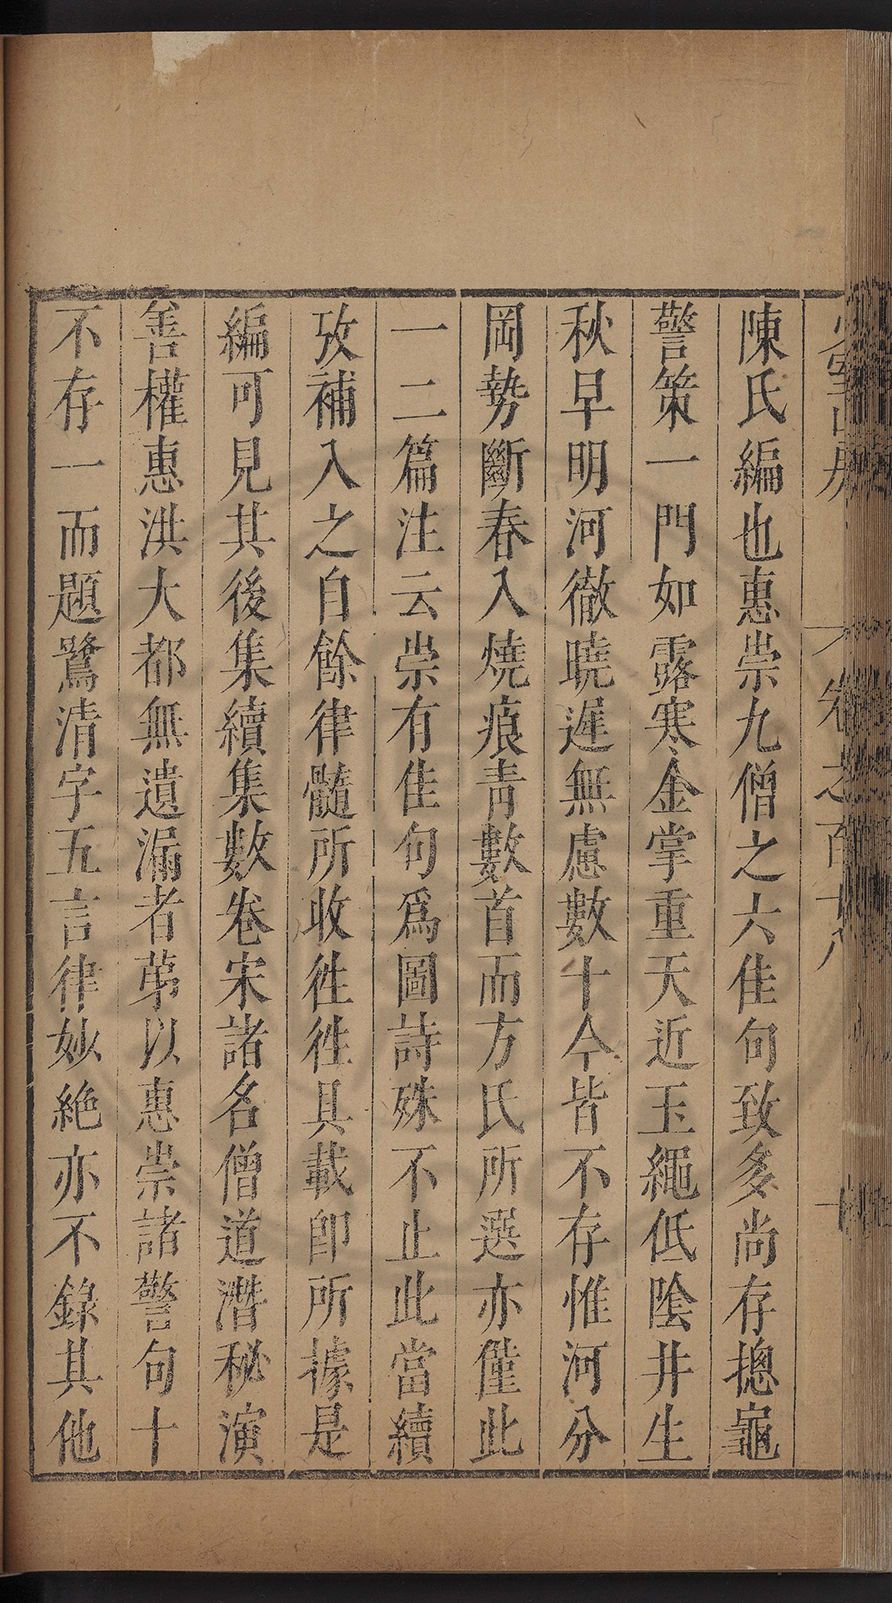 少室山房
卷之百十八
十
陳氏編也惠崇九僧之六佳句致多尚存摠龜
警策一門如露寒金掌重天近玉繩低陰井生
秋早明河徹曉遲無慮數十今皆不存惟河分
岡勢斷春入燒痕青數首而方氏所選亦僅此
一二篇注云崇有佳句爲圖詩殊不止此當續
攷補入之自餘律髓所收徃徃具載卽所據是
編可見其後集續集數卷宋諸名僧道潛秘演
善權惠洪大都無遺漏者苐以惠崇諸警句十
不存一而題鷺清字五言律妙絶亦不錄其他